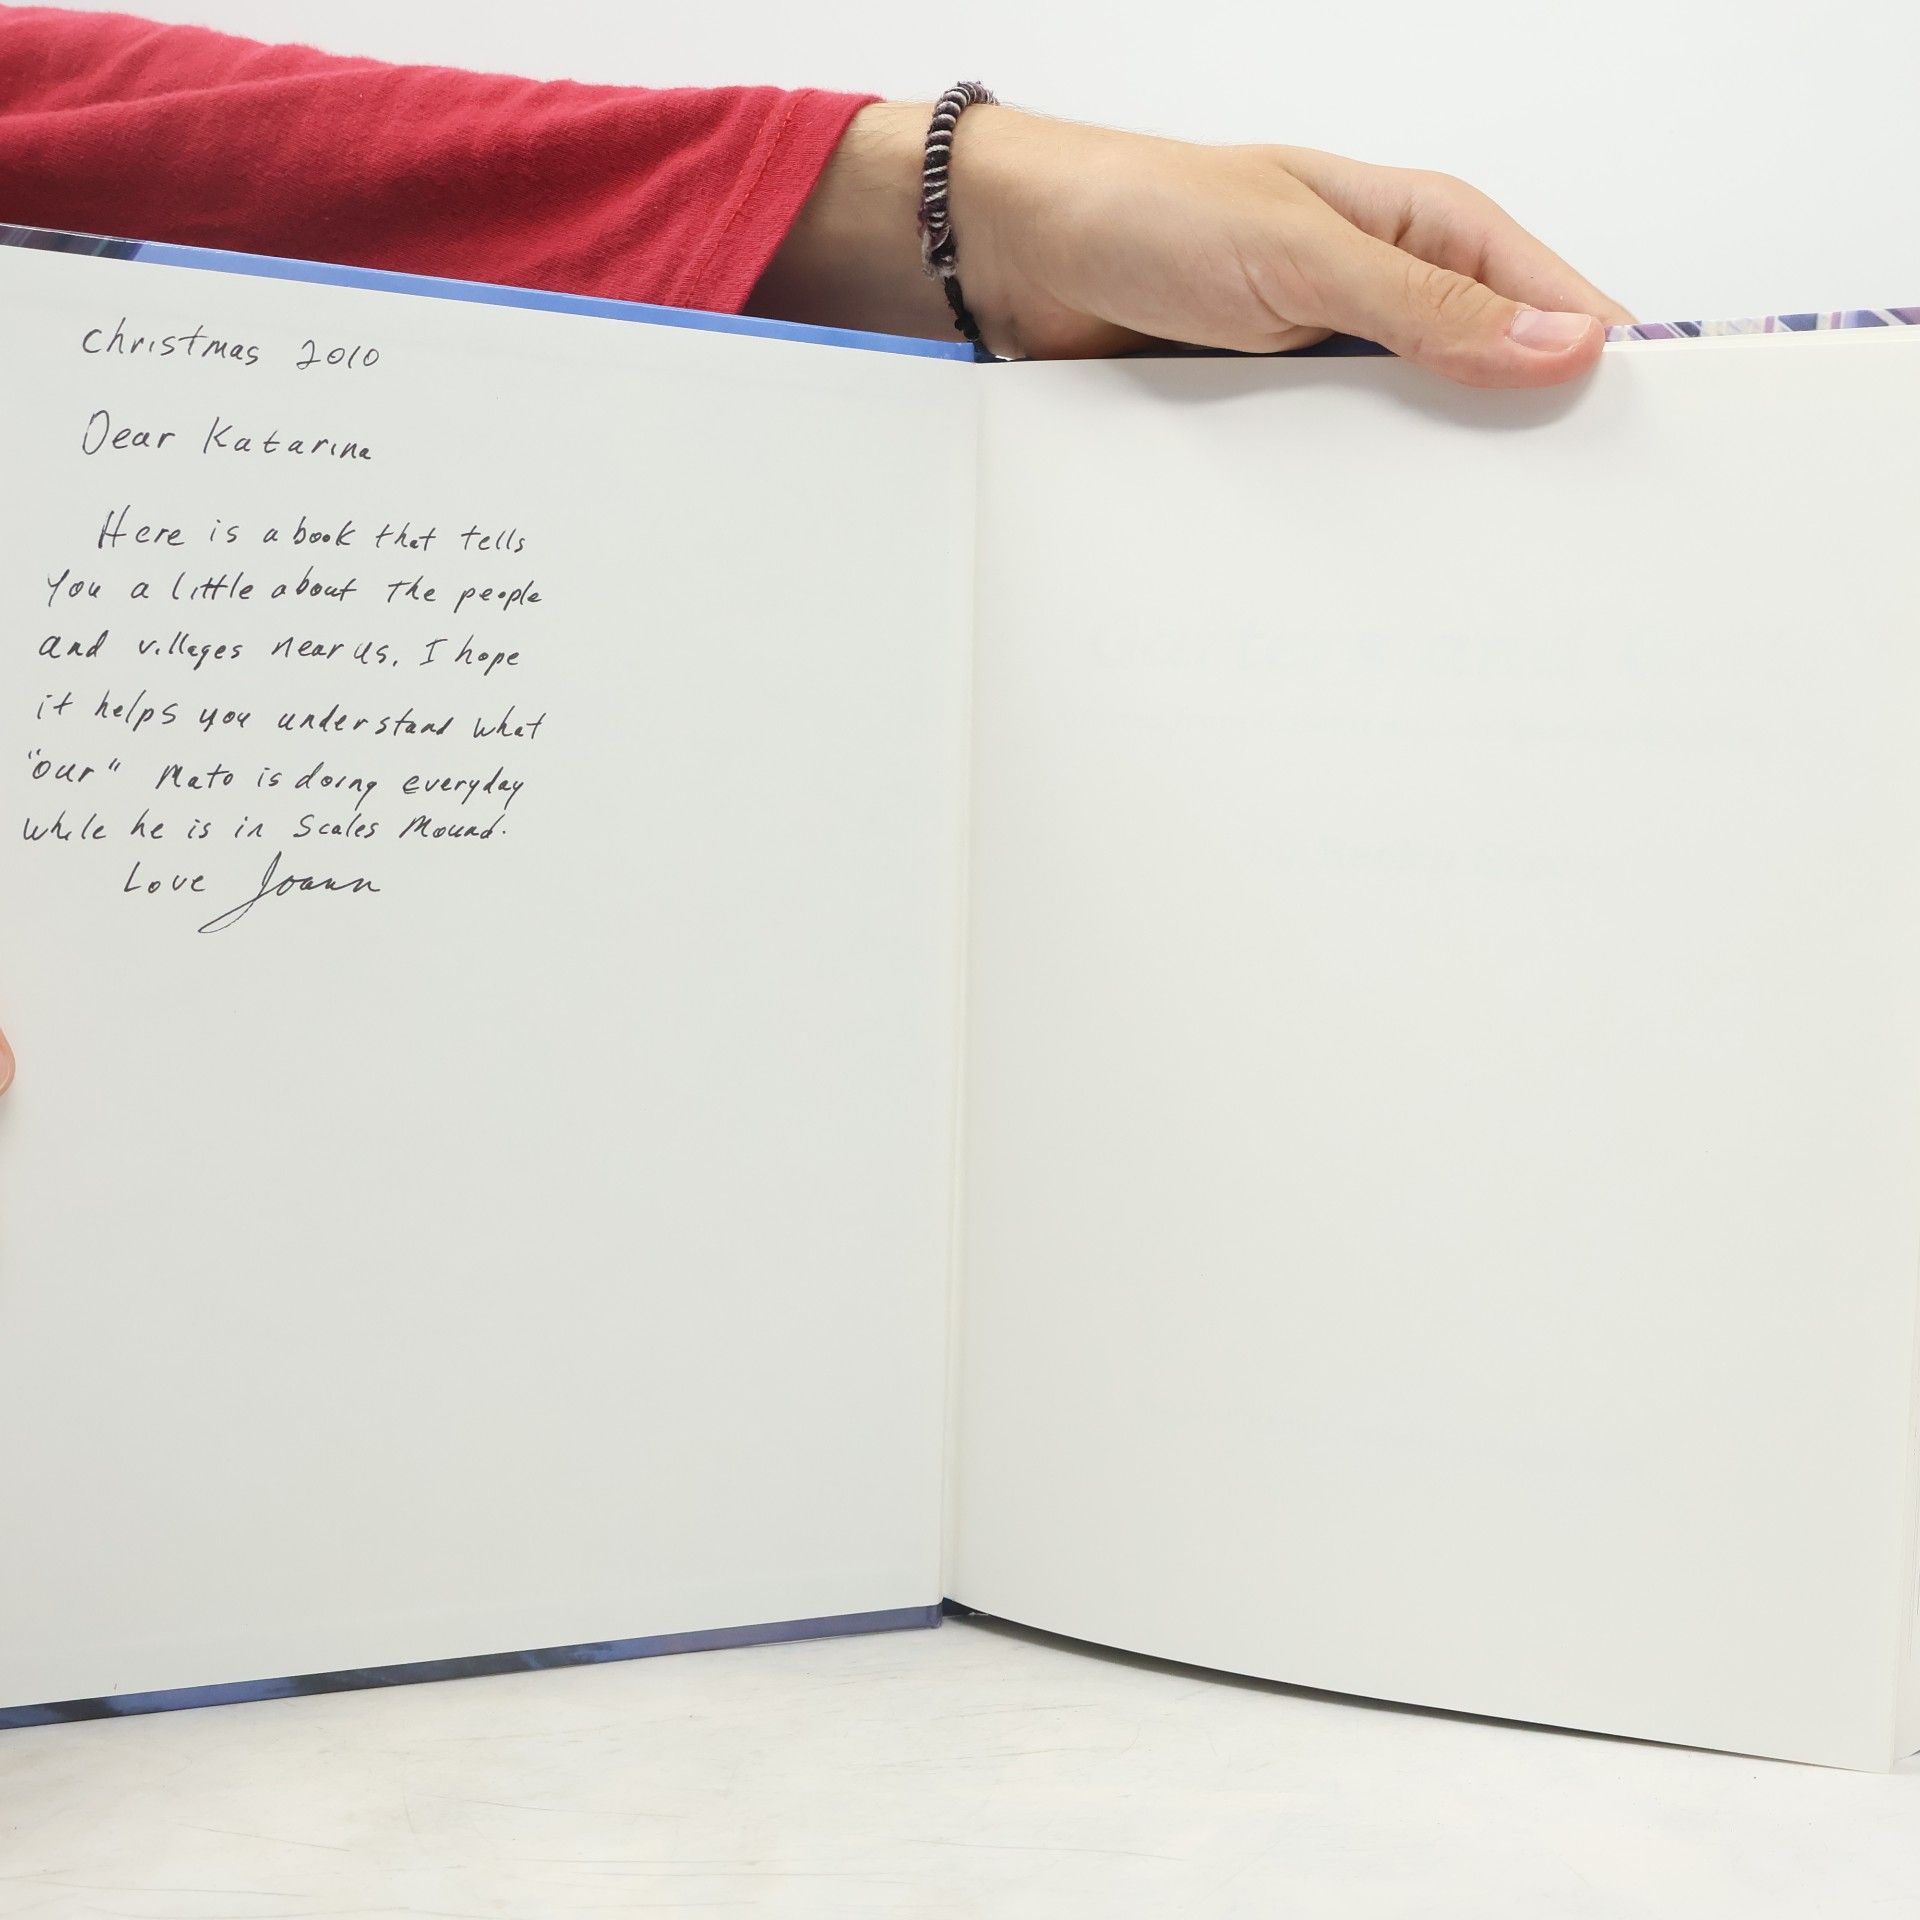 Christmas 2010
Dear Katarina
Here is a book that tells
you a little about the people
and villages near us. I hope
it helps you understand what
"our" Mato is doing everyday
while he is in Scales Mound.
Love Joann